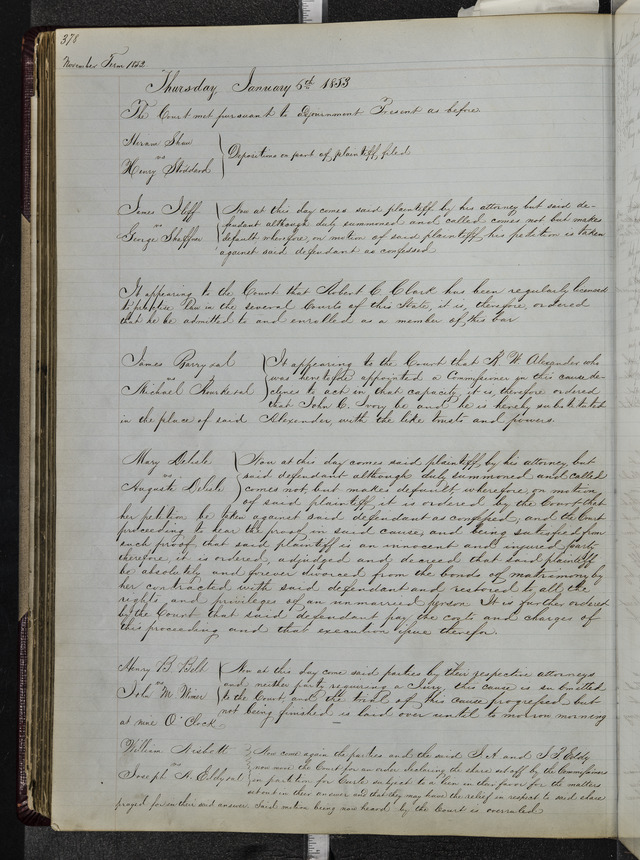 378
November Term 1852
Thursday January 6th 1853
The Court met pursuant to adjournment Present as before
Hiram Shaw
vs
Henry Stoddard
Depositions on part of plaintiff filed
James Iloff
vs
George Shaffner
Now at this day comes said plaintiff by his attorney but said de-
fendant although duly summoned and called comes not but makes
default wherefore, on motion of said plaintiff his petition is taken
against said defendant as confessed
It appearing to the Court that Robert C. Clark has been regularly licensed
to practice Law in the several Courts of this State, it is, therefore, ordered
that he be admitted to and enrolled as a member of this bar
James Barry et al
vs
Michael
It appearing to the Court that R. W. Alexander who
was heretofore appointed a Commissioner in this cause de-
clines to act in that capacity it is therefore ordered
that John C. Ivory be and he is hereby substituted
in the place of said Alexander, with the like trusts and powers.
Mary Delisle
vs
August Delisle
Now at this day comes said plaintiff by his attorney but
said defendant although duly summoned and called
comes not but makes default wherefore, on motion
of said plaintiff it is ordered by the Court that
her petition be taken against said defendant as confessed, and the Court
proceeding to hear the proof in said cause, and being satisfied from
such proof, that said plaintiff is an innocent and injured party
therefore it is ordered, adjudged and decreed that said plaintiff
be absolutely and forever divorced from the bonds of matrimony by
her contracted with said defendant and restored to all the
rights and privileges of an unmarried person It is further ordered
by the Court that said defendant pay the costs and charges of
this proceeding and that execution issue therefor.
Henry B. Belt
vs
John M. Wimer
Now at this day come said parties by their respective attorneys
and neither party requiring a Jury, this cause is submitted
to the Court, and the trial of this cause progressed but
not being finished is laid over until to morrow morning
at nine O'Clock
William Nisbett
vs
Joseph A. Eddy et al
Now come again the parties and the said J. A and J. F. Eddy
now move the Court for an order declaring the share set off by the Commissioners
in partition for Curle subject to a lien in their favor for the matters
set out in their answer and that they may have the relief in respect to said share
prayed for in their said answer. Said motion being now heard by the Court is overruled